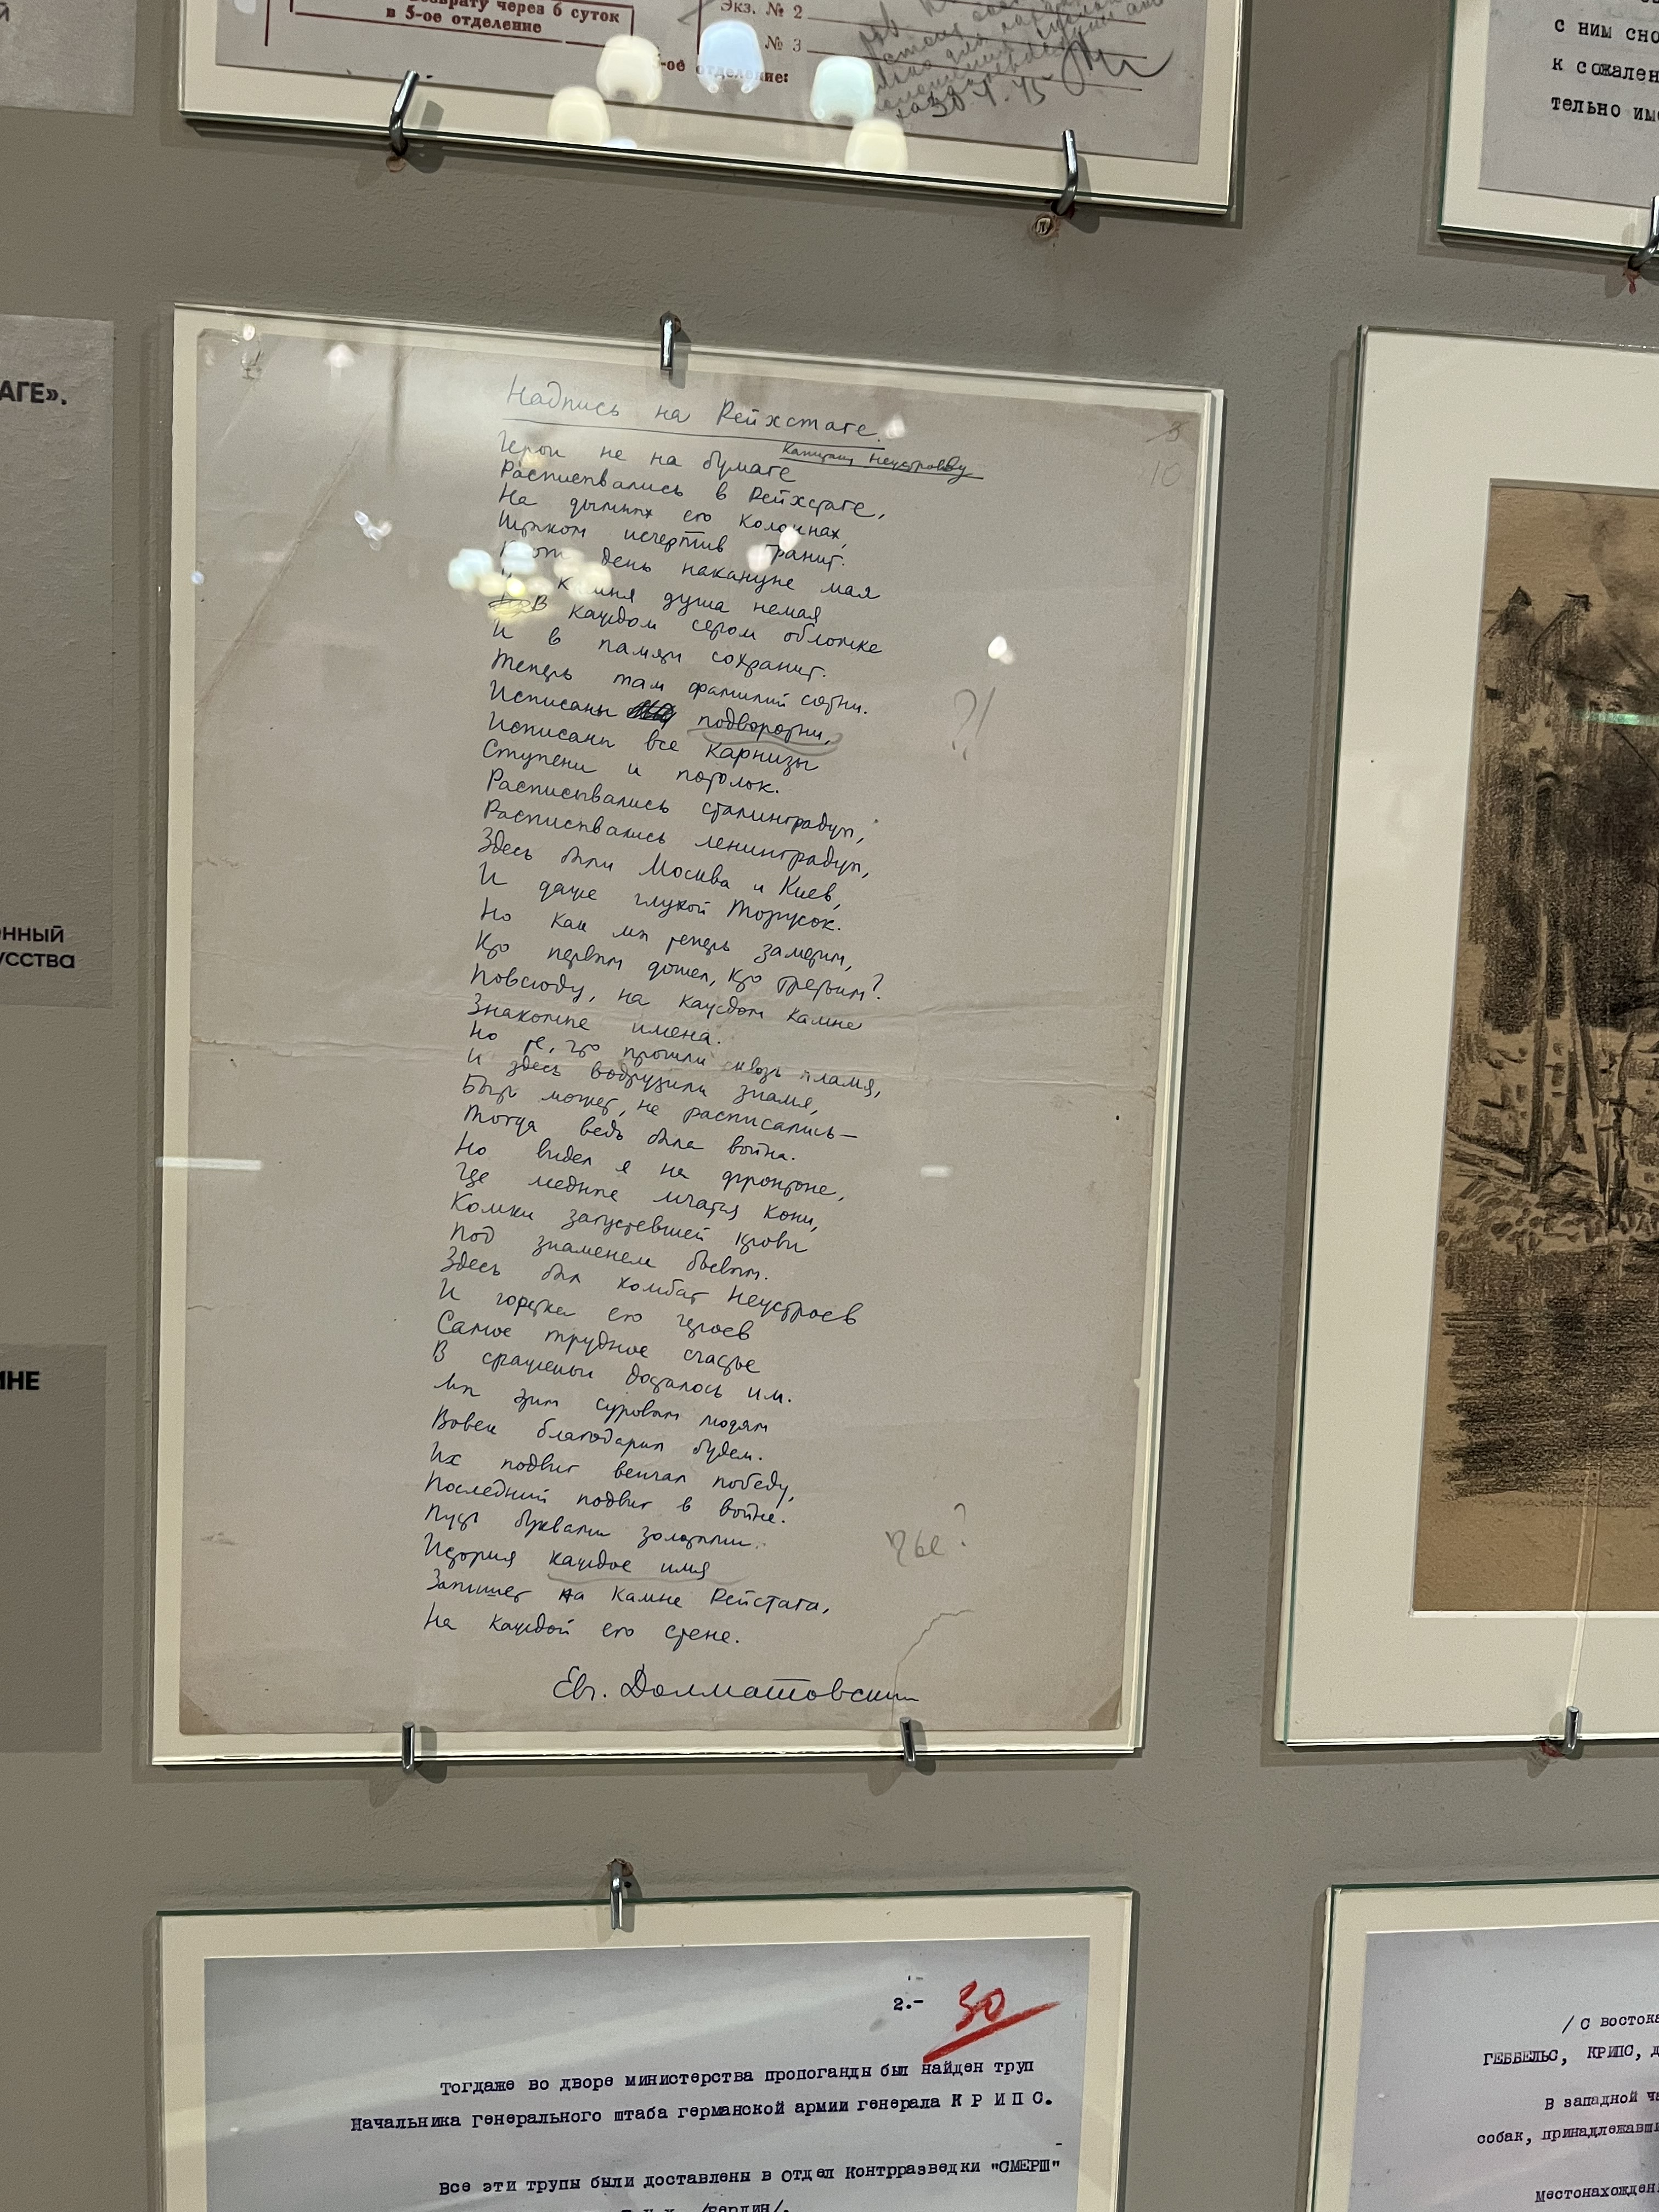 возврату через 6 суток
в 5-ое отделение
Экз. № 2
№ 3
-ое отделение:
30.
45
с ним сно
к сожален
тельно им
АГЕ».
нный
усства
ИНЕ
Надпись на Рейхстаге.
Капитану Неустроеву
10
Герои не на бумаге
Расписывались в Рейхстаге,
На дымных его колоннах,
Штыком исчертив гранит.
день накануне мая
душа немая
В каждом сером обломке
И в памяти сохранит.
Теперь там фамилий сотни.
?!
Исписаны подворотни,
Исписаны все карнизы
Ступени и потолок.
Расписывались сталинградцы,
Расписывались ленинградцы,
Здесь были Москва и Киев,
И даже глухой Торжок.
Но как мы теперь заметим,
Кто первым дошел, кто третьим?
Повсюду, на каждом камне
Знакомые имена.
Но те, что прошли сквозь пламя,
И здесь водрузили знамя,
Быть может, не расписались—
Тогда ведь была война.
Но видел я на фронтоне,
Где медные мчатся кони,
Комки загустевшей крови
Под знаменем боевым.
Здесь был комбат Неустроев
И горстка его героев
Самое трудное счастье
В сраженьи досталось им.
Мы этим суровым людям
Вовек благодарны будем.
Их подвиг венчал победу,
Последний подвиг в войне.
Пусть буквами золотыми
чье?
История каждое имя
Запишет на камне Рейстага,
На каждой его стене.
Евг. Долматовский
2.-
30
Тогдаже во дворе министерства пропоганды был найден труп
Начальника Генерального штаба германской армии генерала К Р И П С.
Все эти трупы были доставлены в Отдел Контрразведки "СМЕРШ"
/Берлин/.
/ С востока
ГЕББЕЛЬС, КРИПС, д
В западной ча
собак, принадлежавши
Местонахожден